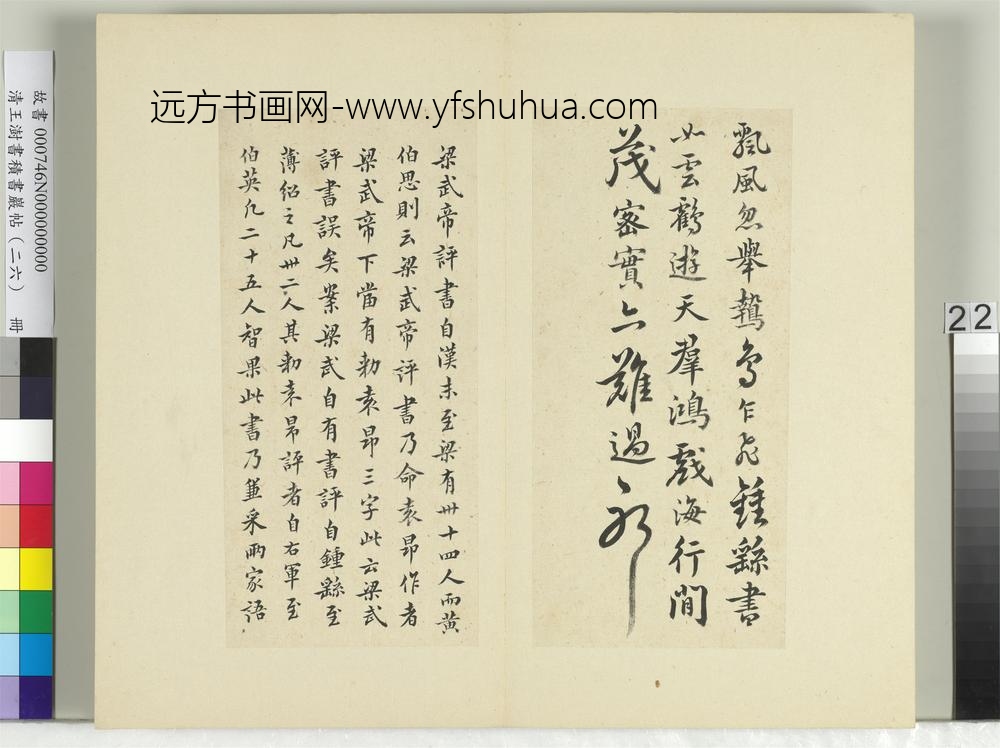 远方书画网-www.yfshuhua.com
飄風忽舉鷙鳥乍飛鍾繇書
如雲鶴遊天羣鴻戲海行間
茂密實亦難過耶
梁武帝評書自漢末至梁有卅十四人而黄
伯思則云梁武帝評書乃命袁昂作者
梁武帝下當有勑袁昂三字此云梁武
評書誤矣案梁武自有書評自鍾繇至
薄紹之凡卅二人其勑袁昂評者自右軍至
伯英凡二十五人智果此書乃兼采兩家語
故書 000746N000000000
清王澍書積書巖帖(二六) 冊
22